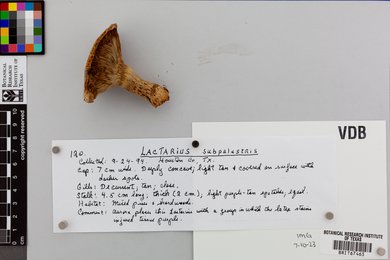 BOTANICAL
RESEARCH
INSTITUTE OF
TEXAS
190. LACTARIUS subpalustris
Collected: 9-24-94. Houston Co, TX.
Cap: 7 cm wide. Deeply concave; light tan & cotton on surface with
darker spots.
Gills: Decurrent, tan; close.
Stalk: 4.5 cm long, thick (2 cm), light purple-tan
Habitat: Mixed pine & hardwoods.
Comment: places this Lactarius with a group in which the latex stains
injured tissue purple.
VDB
IMG
7-10-23
BOTANICAL RESEARCH INSTITUTE
OF TEXAS
BRIT67463